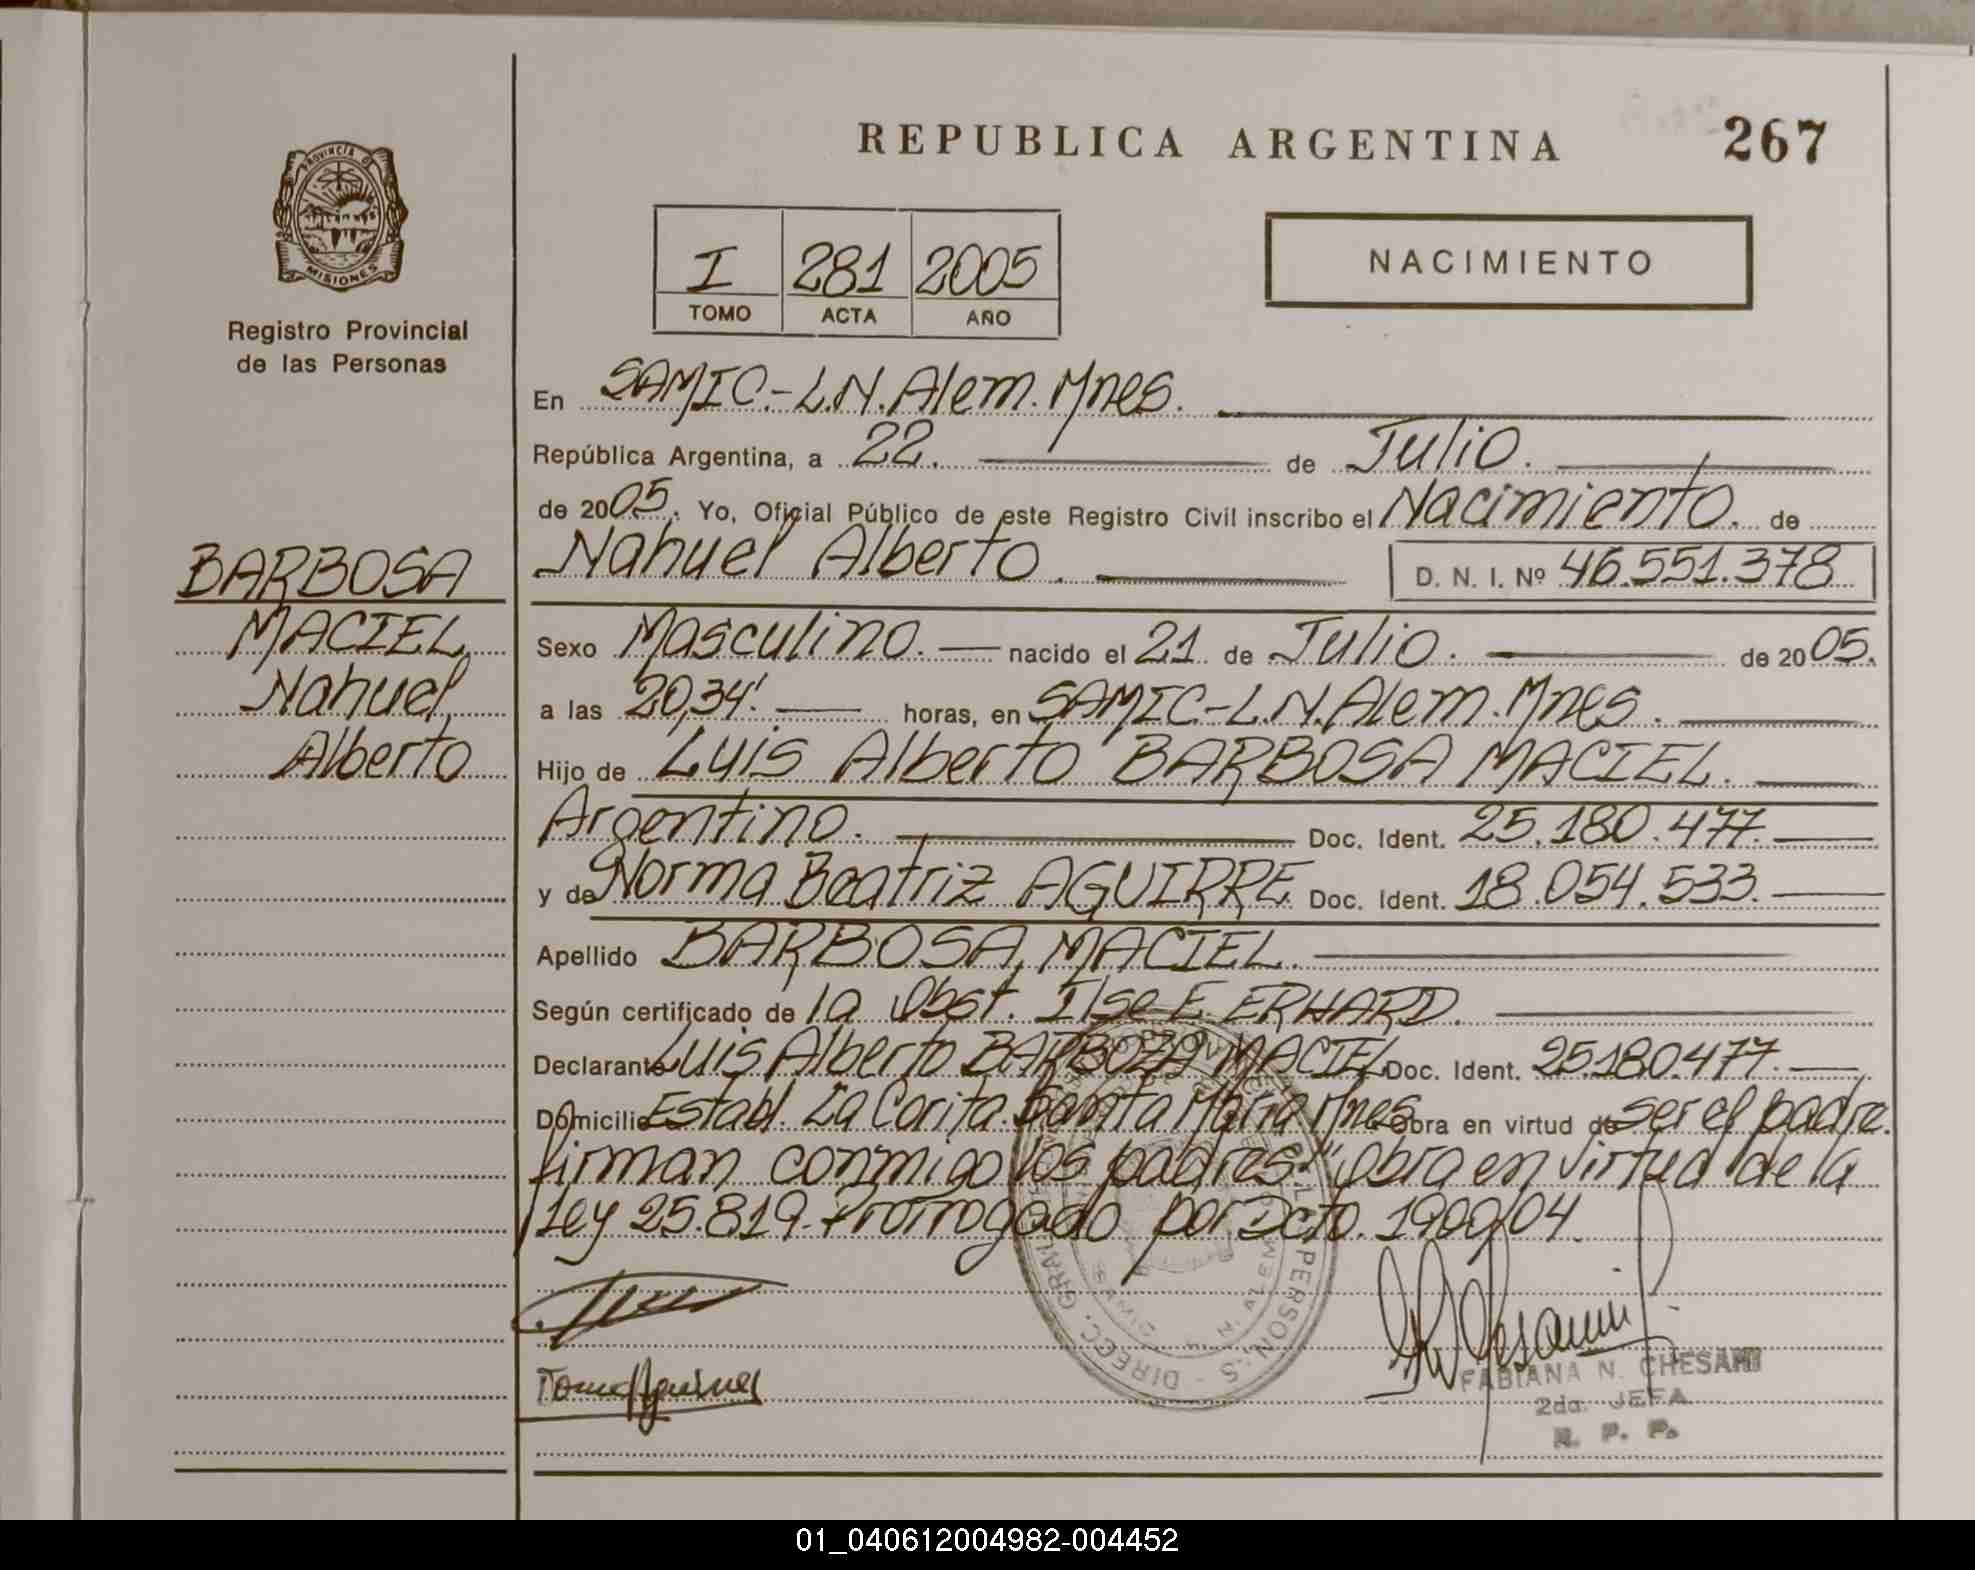 REPUBLICA ARGENTINA
267
PROVINCIA DE
MISIONES
Registro Provincial
de las Personas
I 281 2005
TOMO ACTA AÑO
NACIMIENTO
En SAMIC.-L.N.Alem.Mnes.
República Argentina, a 22. de Julio.
de 2005. Yo, Oficial Público de este Registro Civil inscribo el Nacimiento. de
Nahuel Alberto. D. N. I. Nº 46.551.378
BARBOSA
MACIEL,
Nahuel,
Alberto
Sexo Masculino. nacido el 21 de Julio. de 2005.
a las 20,34' horas, en SAMIC-L.N.Alem.Mnes.
Hijo de Luis Alberto BARBOSA MACIEL.
Argentino. Doc. Ident. 25.180.477.
y de Norma Beatriz AGUIRRE Doc. Ident. 18.054.533.
Apellido BARBOSA MACIEL.
Según certificado de la Obst. Ilse E. ERHARD.
Declarante Luis Alberto BARBOZA MACIEL Doc. Ident. 25.180.477.
Domicilio Establ. La Corita. Santa María Mnes. Obra en virtud de ser el padre.
firman conmigo los padres." Obra en virtud de la
Ley 25.819. Prorrogado por Dcto. 1900/04.
FABIANA N. CHESANI
2da. JEFA
R. P. P.
01_040612004982-004452